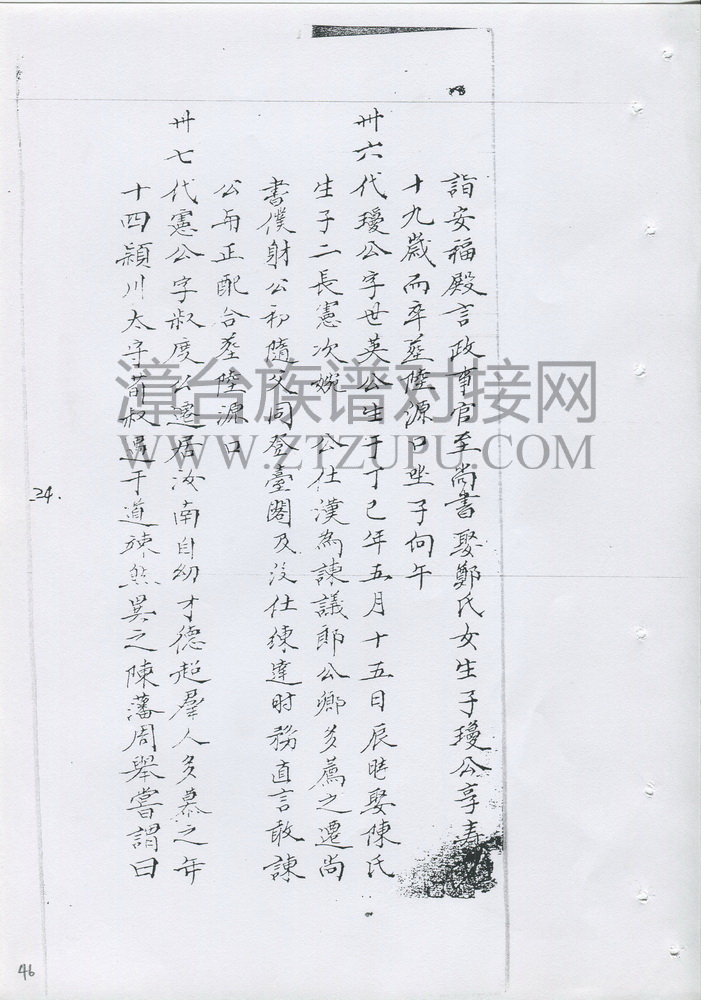 詣安福殿言政事官至尚書娶鄭氏女生子瓊公享寿
十九歲而卒塟陸源口坐子向午
卅六代瓊公字世英公生于丁巳年五月十五日辰時娶陳氏
生子二長憲次婉 公仕漢為諫議郎公鄉多薦之遷尚
書僕射公初隨父同登臺閣及没仕練達时務直言敢諫
公与正配合塟陸源口
卅七代憲公字叔度公遷居汝南自幼才德超羣人多慕之年
十四頴川太守荀叔遇于道竦然異之陳藩周舉嘗謂曰
24.
46
漳台族谱对接网
WWW.ZTZUPU.COM